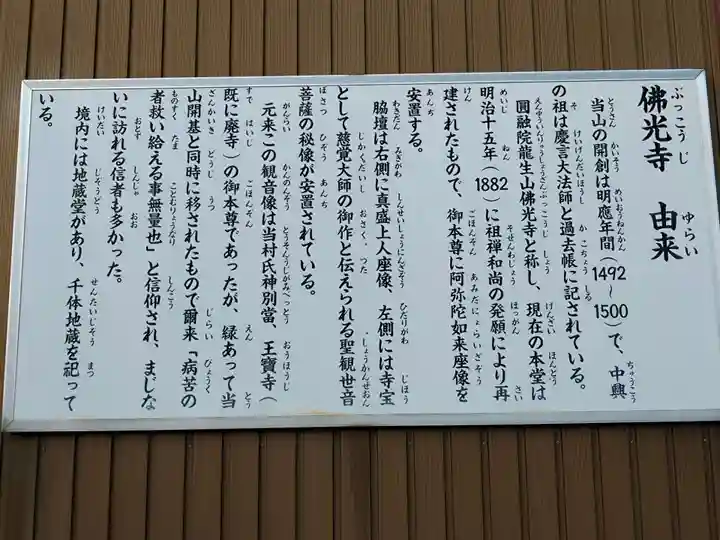 佛光寺 由来
当山の開創は明應年間(1492~1500)で、中興
の祖は慶言大法師と過去帳に記されている。
圓融院龍生山佛光寺と称し、現在の本堂は
明治十五年(1882)に祖禅和尚の発願により再
建されたもので、御本尊に阿弥陀如来座像を
安置する。
脇壇は右側に真盛上人座像、左側には寺宝
として慈覚大師の御作と伝えられる聖観世音
菩薩の秘像が安置されている。
元来この観音像は当村氏神別當、王寶寺(
既に廃寺)の御本尊であったが、縁あって当
山開基と同時に移されたもので爾来「病苦の
者救い給える事無量也」と信仰され、まじな
いに訪れる信者も多かった。
境内には地蔵堂があり、千体地蔵を祀って
いる。